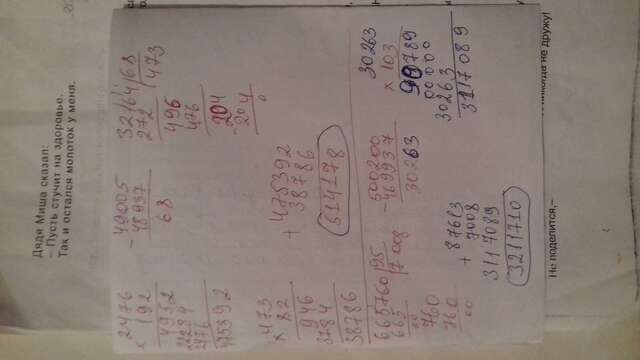 Дядя Миша сказал:
– Пусть стучит на здоровье.
Так и остался молоток у меня.
× 2476
192
4952
22284
2476
475392
- 49005
48937
68
32164 | 68
272 | 473
496
476
204
- 204
0
× 473
82
946
3784
38786
+ 475392
38786
514178
665760 | 95
665 | 7008
760
760
00
- 500200
469937
30263
30263
× 103
90789
00000
30263
3117089
+ 87613
7008
3117089
3211710
Не поделится,–
не дружу!